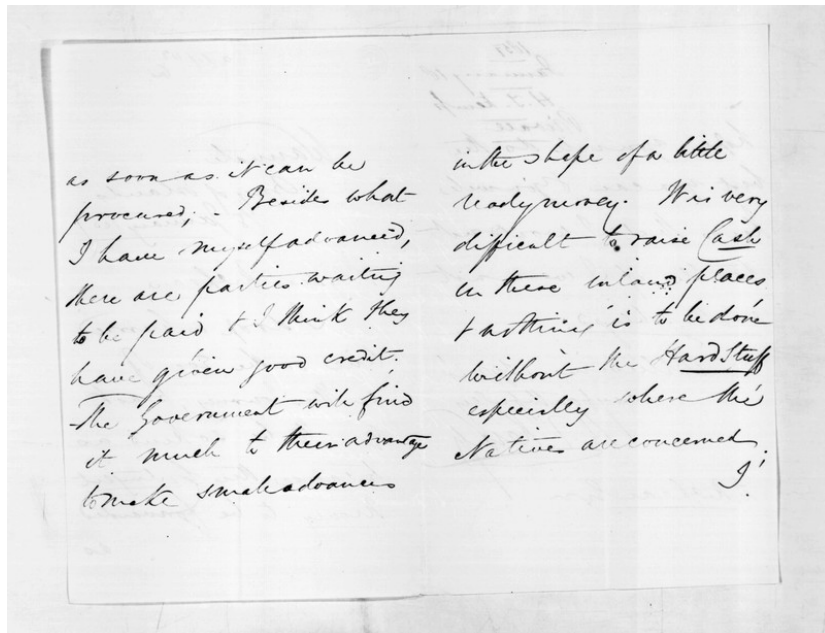 as soon as it can be
procured; - Besides what
I have myself advanced,
there are parties waiting
to be paid & I think they
have given good credit.
The Government will find
it much to their advantage
to make small advances
in the shape of a little
ready money. It is very
difficult to raise Cash
in these inland places
& nothing is to be done
without the Hard Stuff
especially where the
Natives are concerned.
I